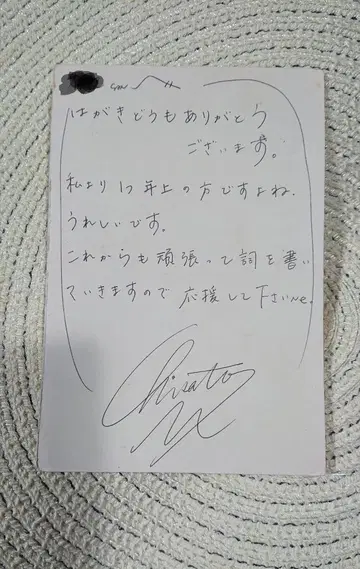 さんへ
はがきどうもありがとう
ございます。
私より17年上の方ですよね。
うれしいです。
これからも頑張って詞を書い
ていきますので応援して下さいne。
Chisato M